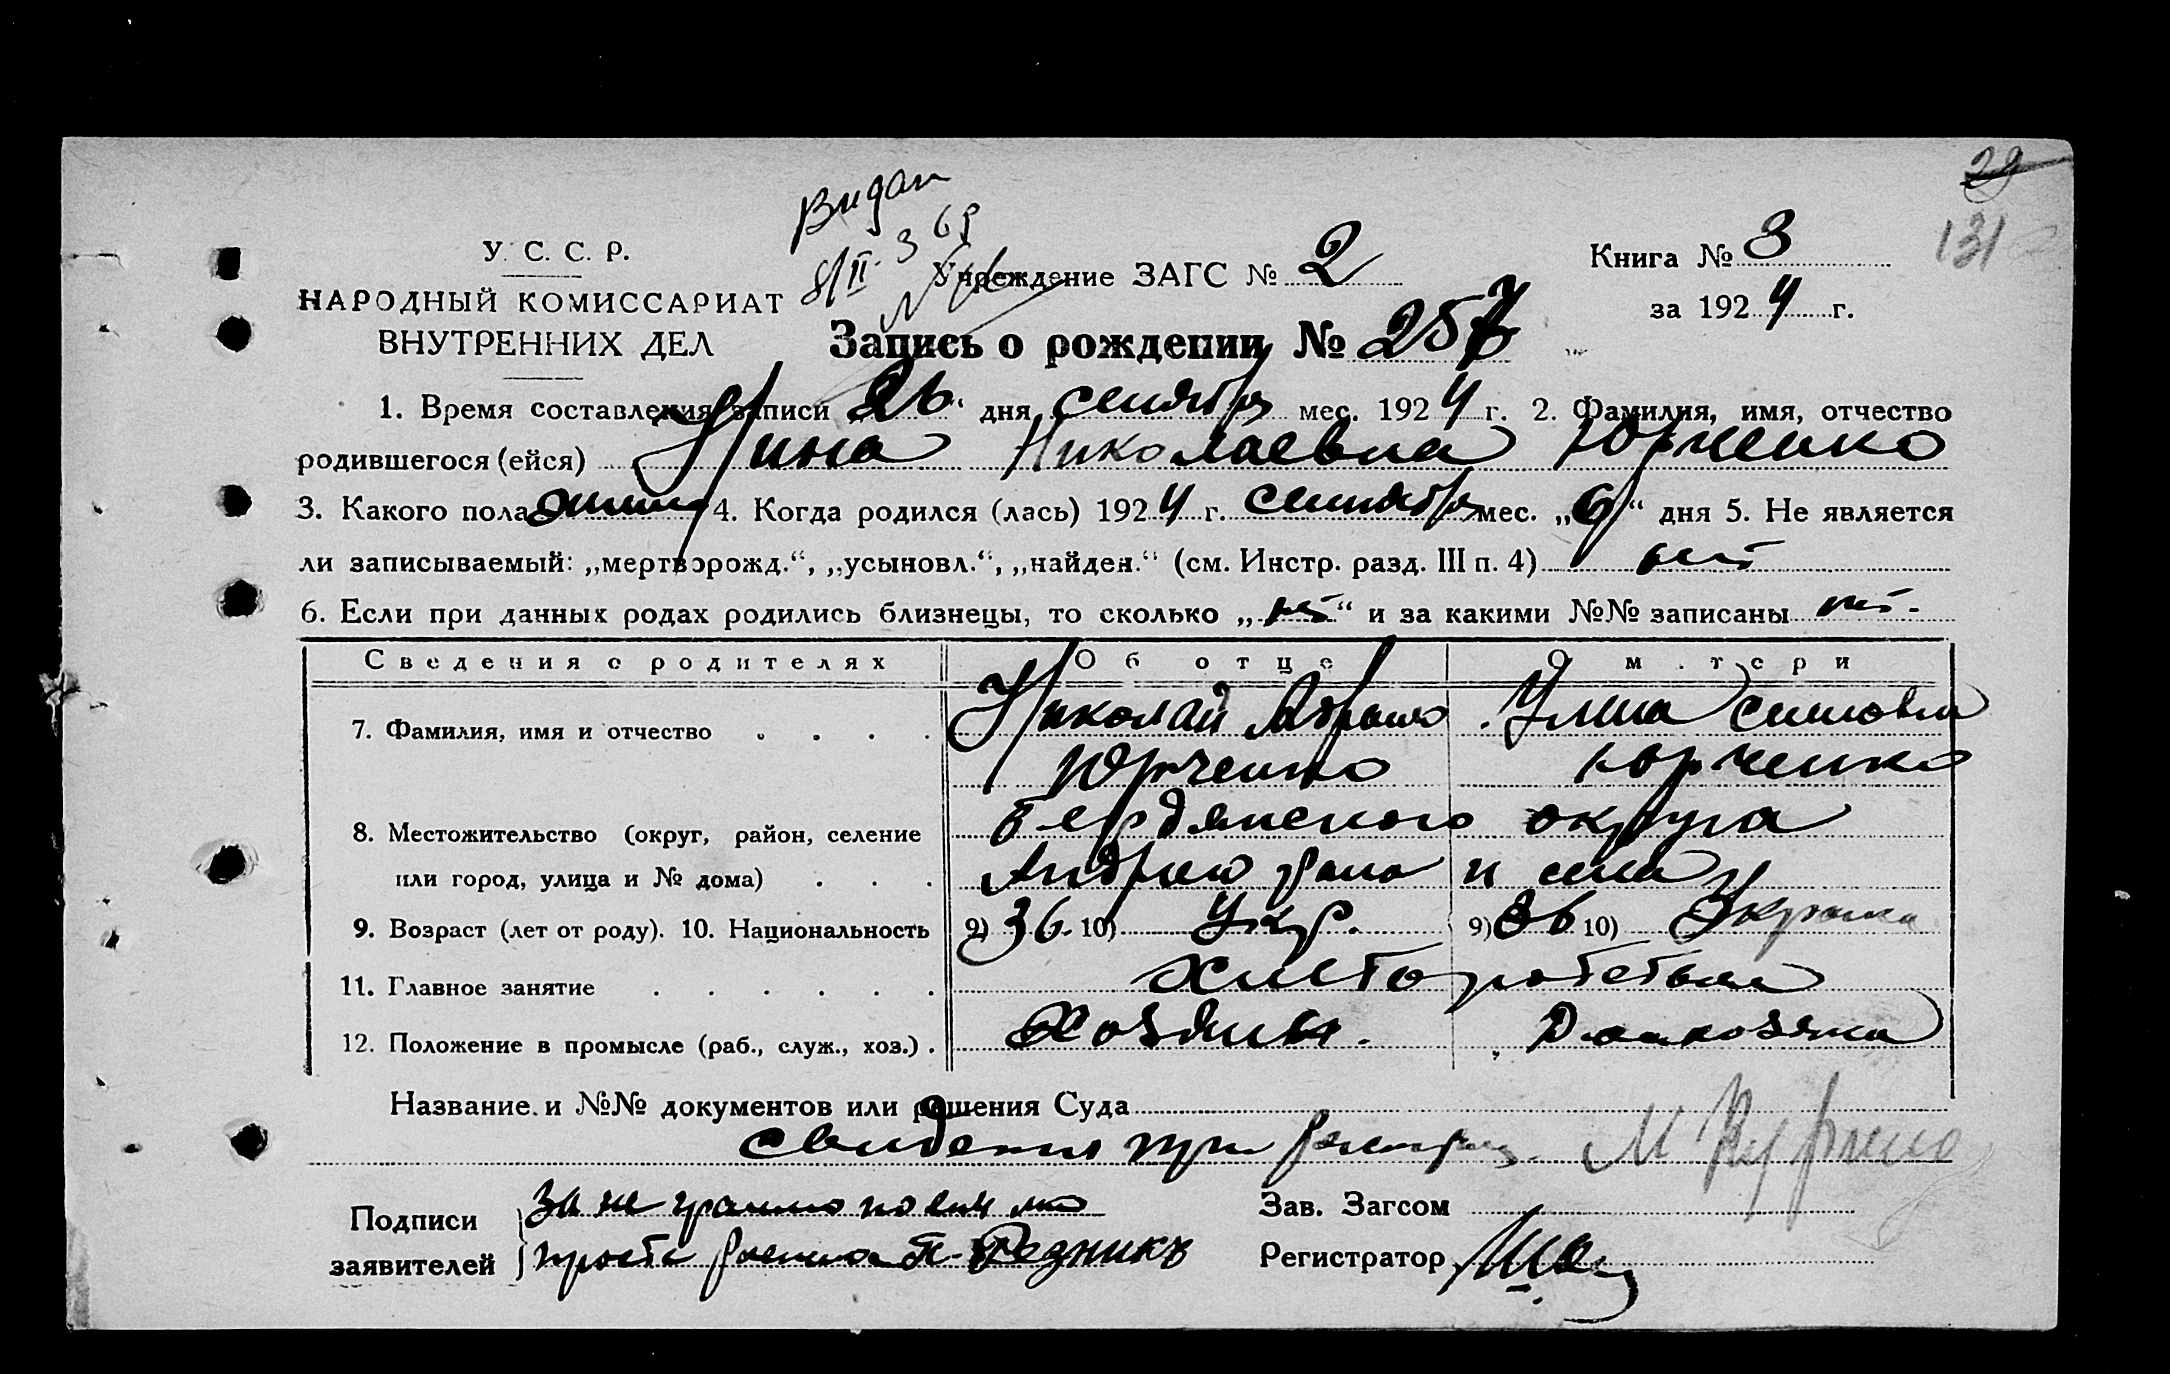 29
131
Видан
8/II. 3 69
У. С. С. Р.
НАРОДНЫЙ КОМИССАРИАТ
ВНУТРЕННИХ ДЕЛ
Учреждение ЗАГС № 2
Книга № 3
за 1924 г.
Запись о рождении № 257
1. Время составления записи 26 дня сентября мес. 1924 г. 2. Фамилия, имя, отчество
родившегося (ейся) Нина Николаевна Юрченко
3. Какого пола 4. Когда родился (лась) 1924 г. сентября мес. „6“ дня 5. Не является
ли записываемый: „мертворожд.“, „усыновл.“, „найден.“ (см. Инстр. разд. III п. 4) нет
6. Если при данных родах родились близнецы, то сколько „нет“ и за какими №№ записаны нет.
Сведения о родителях Об отце О матери
7. Фамилия, имя и отчество . . . . Николай Абрамо Улина Симовна
Юрченко Юрченко
8. Местожительство (округ, район, селение Бердянского округа
или город, улица и № дома) . . . Андрею рана и села
9. Возраст (лет от роду). 10. Национальность 9) 36. 10) Укр. 9) 36 10) Украинка
11. Главное занятие . . . . . . Хлеборобство
12. Положение в промысле (раб., служ., хоз.) . Хозяин. Домхозяйка
Название и №№ документов или решения Суда
при М Юрченко
Подписи
заявителей
За не грамотно
П. Резникъ
Зав. Загсом
Регистратор